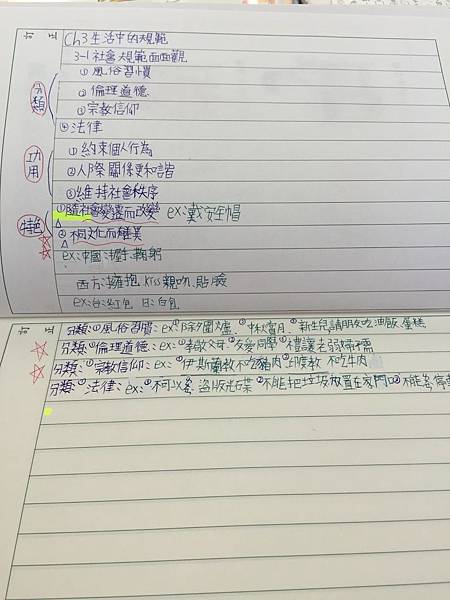 訂 正
Ch3生活中的規範
3-1社會規範面面觀
分類
①風俗習慣
②倫理道德
③宗教信仰
④法律
功用
①約束個人行為
②人際關係更和諧
③維持社會秩序
特色
①隨社會變遷而改變 ex:戴安全帽
②因文化而種異
ex:中國:握手.鞠躬
西方:擁抱.kiss親吻.貼臉
ex:台:紅包 日:白包
訂 正
分類:①風俗習習:ex:①除夕圍爐.②中秋賞月.③新生兒請朋友吃油飯.蛋糕
分類:②倫理道德:ex:①孝敬父母②友愛同學③禮讓老弱婦孺
分類:③宗教信仰:ex:①伊斯蘭教不吃豬肉②印度教 不吃牛肉
分類:④法律:ex:①不可以差 盜版光碟②不能把垃圾放置在家門口③不能